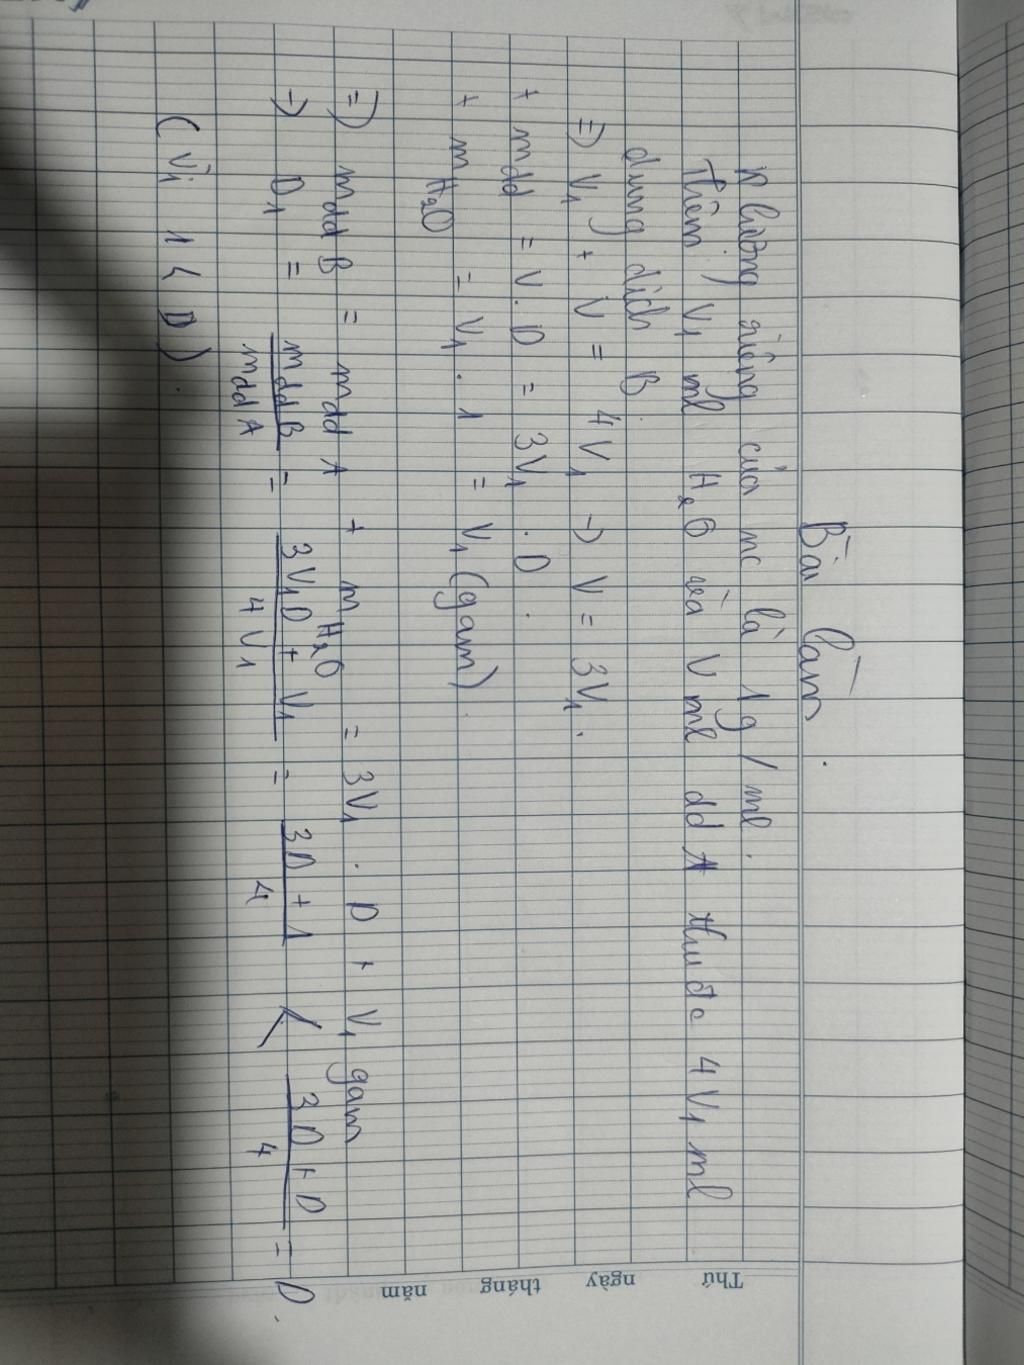 Bài làm.
Khối lượng riêng của nc là 1g/ml.
Thêm V₁ ml H₂O vào V ml dd A thu đc 4V₁ ml
dung dịch B.
=) V₁ + V = 4V₁ -) V = 3V₁.
+ mdd = V.D = 3V₁.D.
+ mH₂O = V₁.1 = V₁ (gam)
=) mdd B = mdd A + mH₂O = 3V₁.D + V₁ gam
-) D₁ = mdd B / mdd A = 3V₁D + V₁ / 4V₁ = 3D + 1 / 4 < 3D + D / 4 = D.
(Vì 1 < D).
Thứ ngày tháng năm